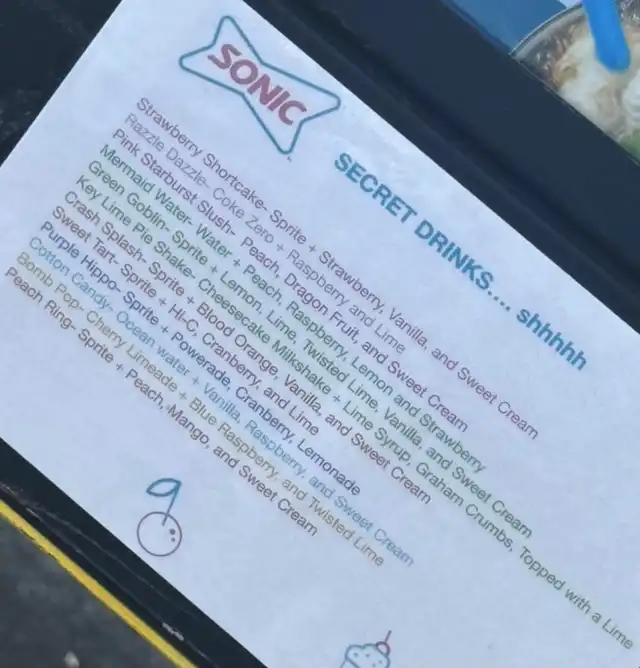 SONIC
SECRET DRINKS.... shhhhh
Strawberry Shortcake- Sprite + Strawberry, Vanilla, and Sweet Cream
Razzle Dazzle- Coke Zero + Raspberry and Lime
Pink Starburst Slush- Peach, Dragon Fruit, and Sweet Cream
Mermaid Water- Water + Peach, Raspberry, Lemon and Strawberry
Green Goblin- Sprite + Lemon, Lime, Twisted Lime, Vanilla, and Sweet Cream
Key Lime Pie Shake- Cheesecake Milkshake + Lime Syrup, Graham Crumbs, Topped with a Lime
Crash Splash- Sprite + Blood Orange, Vanilla, and Sweet Cream
Sweet Tart- Sprite + Hi-C, Cranberry, and Lime
Purple Hippo- Sprite + Powerade, Cranberry, Lemonade
Cotton Candy- Ocean water + Vanilla, Raspberry, and Sweet Cream
Bomb Pop- Cherry Limeade + Blue Raspberry, and Twisted Lime
Peach Ring- Sprite + Peach, Mango, and Sweet Cream